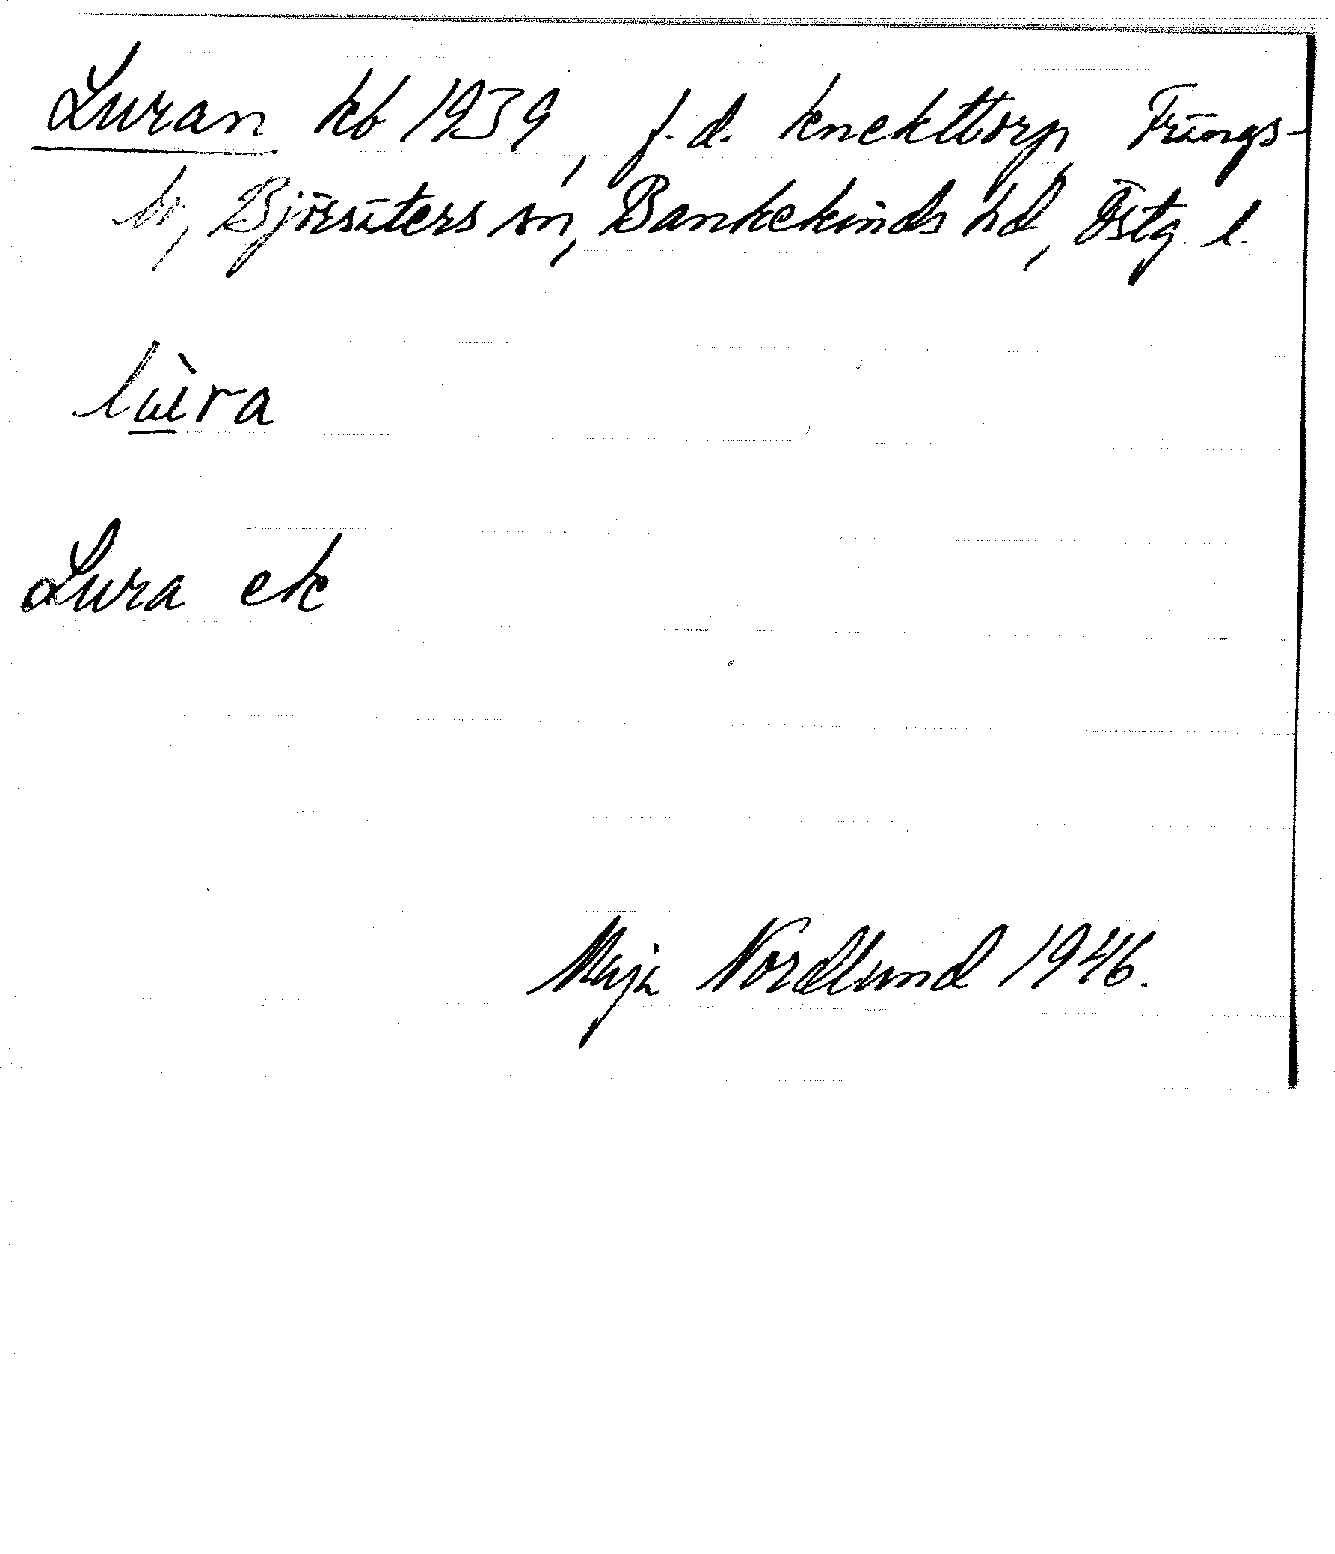 Luran kb 1939, f.d. knekttorp, Frängs-
bo, Björsäters sn, Bankekinds hd, Östg. l.
lùra
Lura ek
Maja Nordlund 1946.